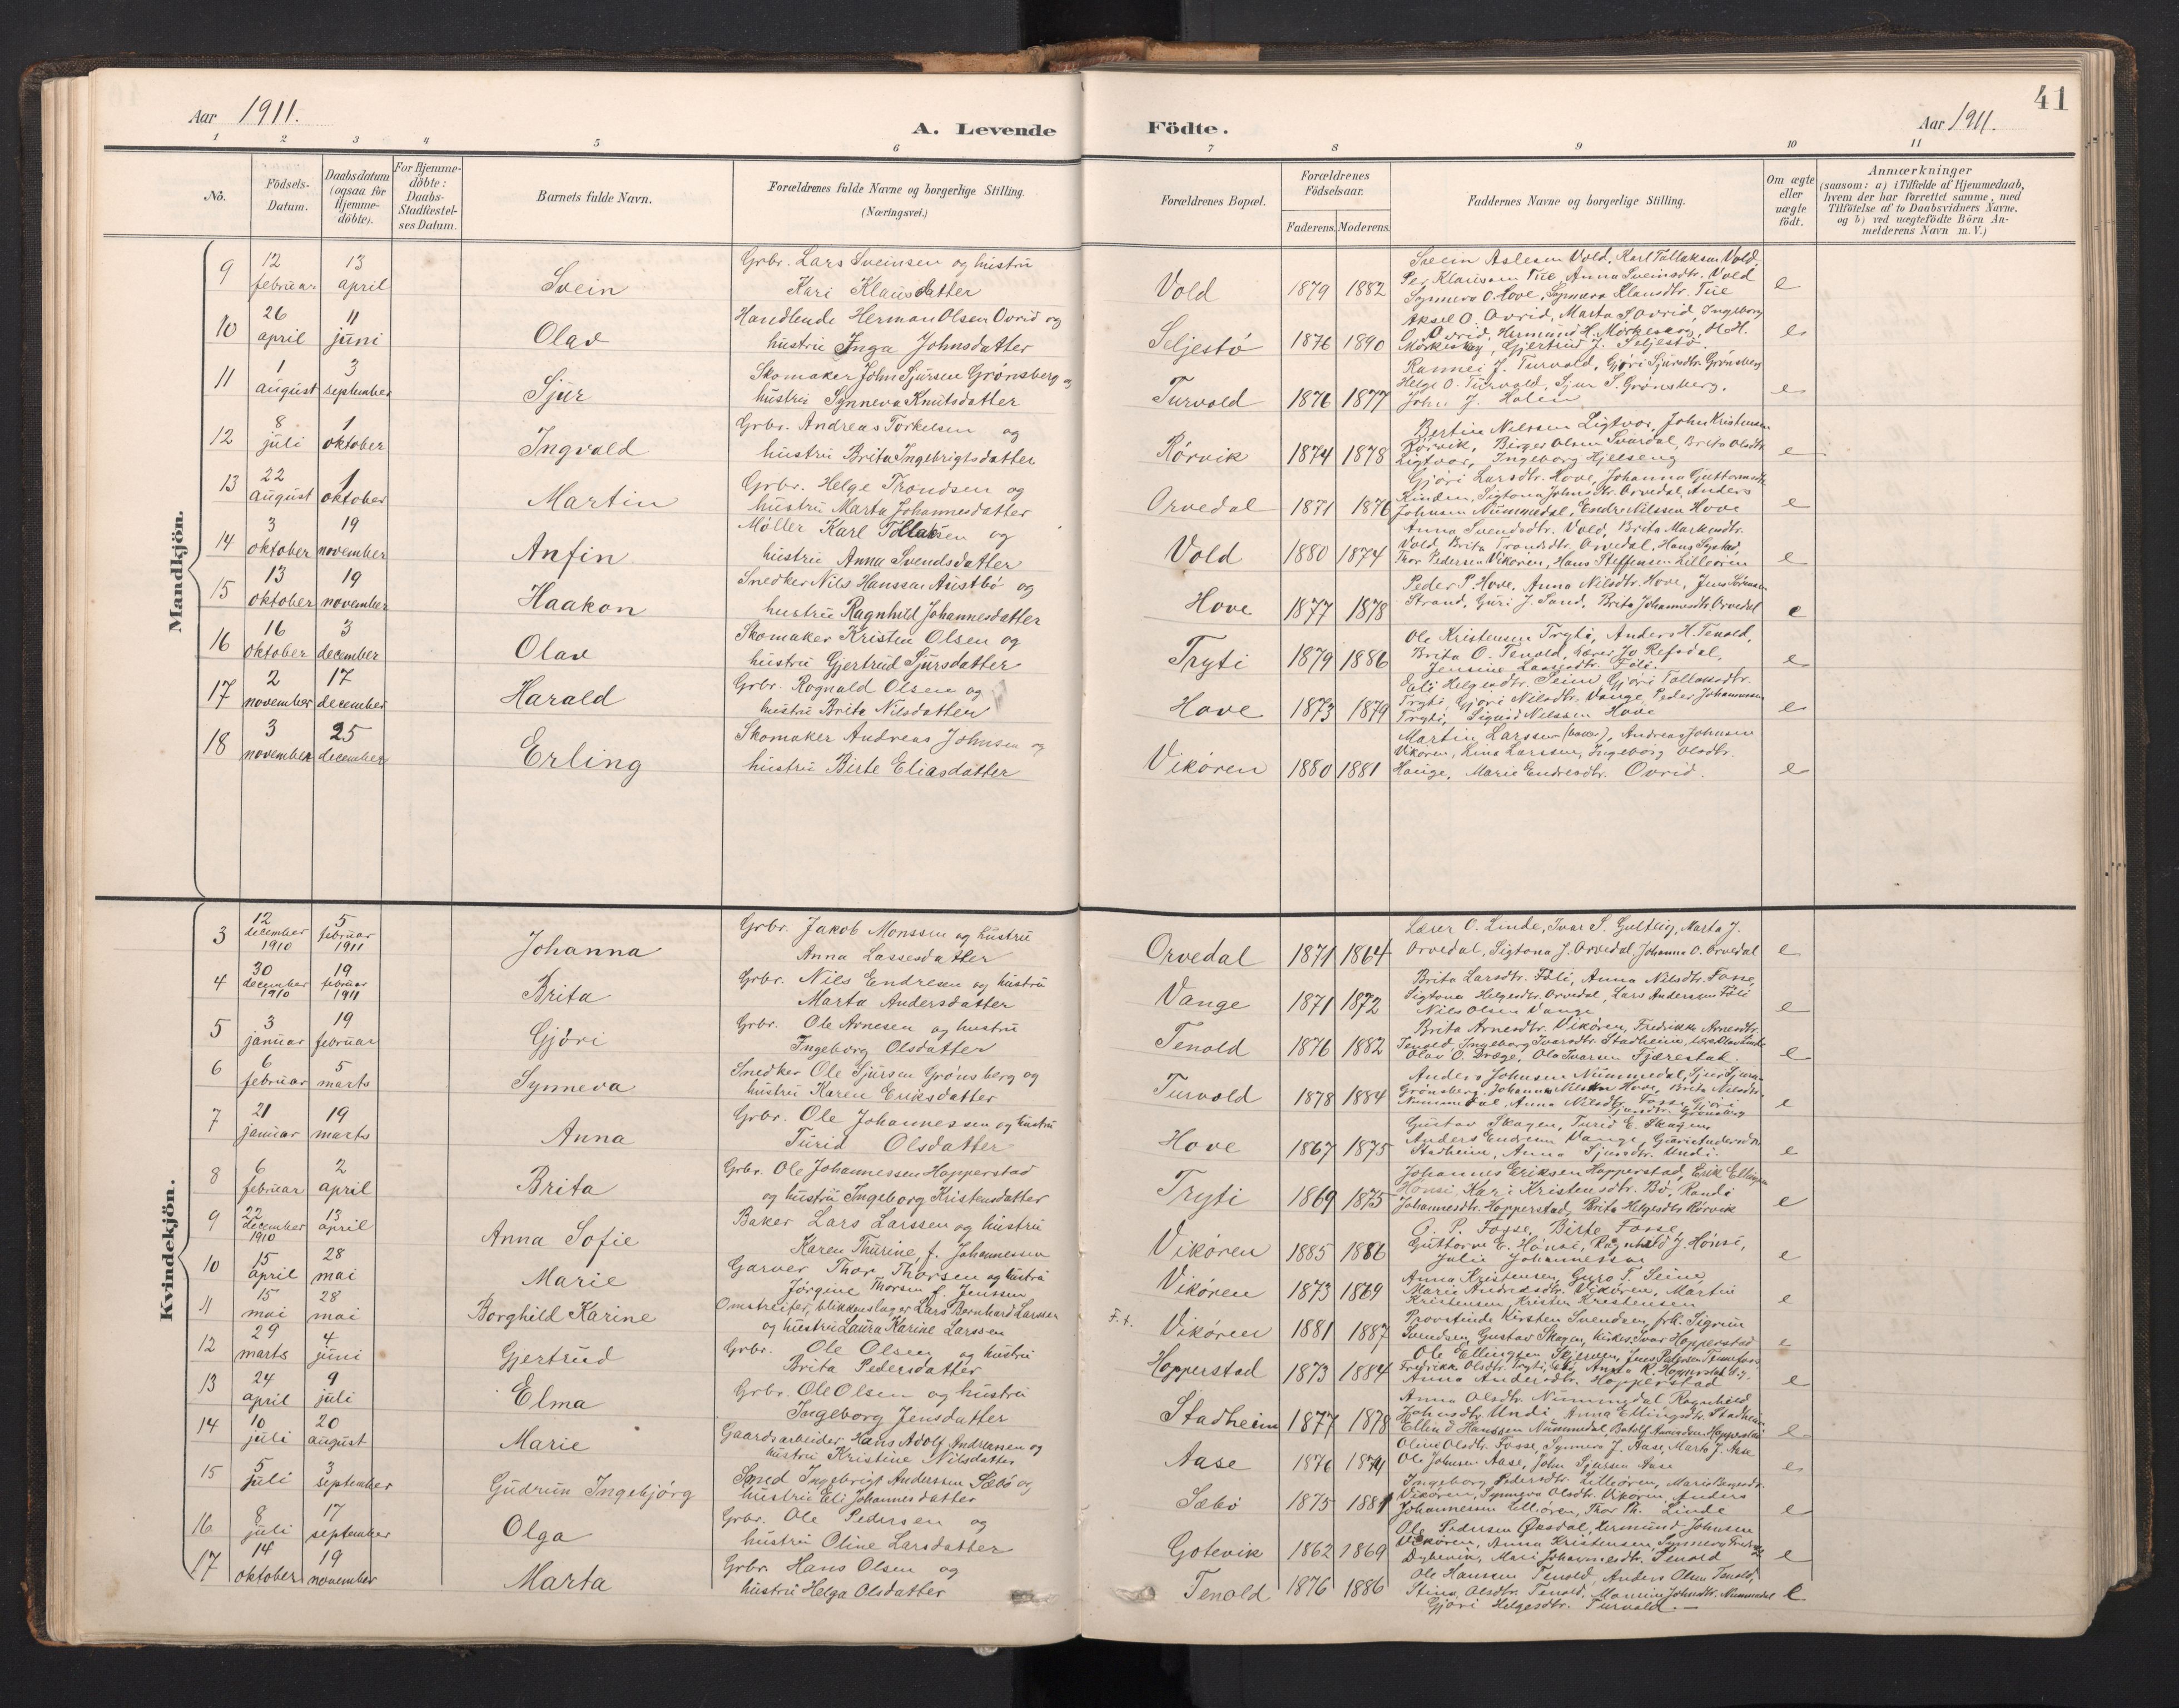 41
Aar 1911.
A. Levende
Födte.
Aar 1911.
1 2 3 4 5 6 7 8 9 10 11
No.
Födsels-
Datum.
Daabsdatum
(ogsaa for
Hjemme-
döbte).
For Hjemme-
döbte:
Daabs-
Stadfæstel-
ses Datum.
Barnets fulde Navn.
Forældrenes fulde Navne og borgerlige Stilling.
(Næringsvei.)
Forældrenes Bopæl.
Forældrenes
Födselsaar.
Faderens. Moderens.
Faddernes Navne og borgerlige Stilling.
Om ægte
eller
uægte
födt.
Anmærkninger
(saasom: a) i Tilfælde af Hjemmedaab,
hvem der har forrettet samme, med
Tilföielse af to Daabsvidners Navne.
og b) ved uægtefödte Börn An-
melderens Navn m. V.)
Mandkjön.
9 12 februar 13 april Svein
Grbr. Lars Sveinsen og hustru
Kari Klausdatter
Vold 1879 1882
Svein Aslesen Vold, Karl Tollaksen Vold,
Per Klausen Tue, Anna Sveinsdtr. Vold
Synneva O. Hove, Synneva Klausdtr. Tue
e
10 26 april 11 juni Olav
Handlende Herman Olsen Ovrid og
hustru Inga Johnsdatter
Seljestö 1876 1890
Aksel O. Ovrid, Marta S. Ovrid, Ingeborg
O. Ovrid, Hermund H. Mörkeseng, H. H.
Mörkeseng, Gjertrud J. Seljestö.
e
11 1 august 3 september Sjur
Skomaker John Sjursen Grönsberg og
hustru Synneva Knutsdatter
Turvold 1876 1877
Rannei J. Turvold, Gjöri Sjursdtr. Grönsberg
Helge O. Turvold, Sjur S. Grönsberg.
John J. Holen
e
12 8 juli 1 oktober Ingvald
Grbr. Andreas Torkelsen og
hustru Brita Ingebrigtsdatter
Rörvik 1874 1878
Bertin Nilssen Ligtvor, John Kristensen
Rörvik, Birger Olsen Svardal, Brita Olsdtr.
Ligtvor, Ingeborg Hjelseng
e
13 22 august 1 oktober Martin
Grbr. Helge Trondsen og
hustru Marta Johannesdatter
Orvedal 1871 1876
Gjöri Larsdtr. Hove, Johanna Guttormsdtr.
Rinden, Sigtona Johnsdtr. Orvedal, Anders
Johnsen Nummedal, Endre Nilssen Hove
e
14 3 oktober 19 november Anfin
Möller Karl Tollaksen og
hustru Anna Svendsdatter
Vold 1880 1874
Anna Svendsdtr. Vold, Brita Markusdtr.
Vold, Brita Trondsdtr. Orvedal, Hans Systad,
Thor Pedersen Vikören, Hans Steffensen Lilleören
e
15 13 oktober 19 november Haakon
Snedker Nils Hanssen Austbö og
hustru Ragnhild Johannesdatter
Hove 1877 1878
Peder P. Hove, Anna Nilsdtr. Hove, Jens
Strand, Guri J. Sand, Brita Johannesdtr. Orvedal
e
16 16 oktober 3 december Olav
Skomaker Kristen Olsen og
hustru Gjertrud Sjursdatter
Tryti 1879 1886
Ole Kristensen Tryti, Anders H. Tenold,
Brita O. Tenold, Lærer Jo Refsdal,
Jensine Lassesdtr. Föli.
e
17 2 november 17 december Harald
Grbr. Rognald Olsen og
hustru Brita Nilsdatter
Hove 1873 1879
Eli Helgesdtr. Seim, Gjöri Tollaksdtr.
Tryti, Gjöri Nilsdtr. Vange, Peder Johannessen
Tryti, Sigurd Nilssen Hove
e
18 3 november 25 december Erling
Skomaker Andreas Johnsen og
hustru Birte Eliasdatter
Vikören 1880 1881
Martin Larssen (baker), Andreas Johnsen
Vikören, Lina Larssen, Ingeborg Olsdtr.
Hauge, Marie Endresdtr. Ovrid.
e
Kvindekjön.
3 12 december 1910 5 februar 1911 Johanna
Grbr. Jakob Monssen og hustru
Anna Lassesdatter
Orvedal 1871 1864
Lærer O. Linde, Ivar S. Gulteig, Marta J.
Orvedal, Sigtona J. Orvedal, Johanna O. Orvedal
e
4 30 december 1910 19 februar 1911 Brita
Grbr. Nils Endresen og hustru
Marta Andersdatter
Vange 1871 1872
Brita Larsdtr. Föli, Anna Nilsdtr. Fosse,
Sigtona Helgesdtr. Orvedal, Lars Anderssen Föli
Nils Olsen Vange
e
5 3 januar 19 februar Gjöri
Grbr. Ole Arnesen og hustru
Ingeborg Olsdatter
Tenold 1876 1882
Brita Arnesdtr. Vikören, Fredrikke Arnesdtr.
Tenold, Ingeborg Ivarsdtr. Stadheim,
Olav O. Dræge, Ola Ivarsen Fjærestad.
e
6 6 februar 5 marts Synneva
Snedker Ole Sjursen Grönsberg og
hustru Karen Eriksdatter
Turvold 1878 1884
Anders Johnsen Nummedal, Sjur Sjursen
Grönsberg, Johannes Nilsen Hove, Brita Nilsdtr.
Nummedal, Anna Nilsdtr. Fosse, Gjöri
Sjursdtr. Grönsberg
e
7 21 januar 19 marts Anna
Grbr. Ole Johannessen og hustru
Turid Olsdatter
Hove 1867 1875
Gustav Skagen, Turid E. Skagen,
Anders Endresen Vange, Guri Andersdtr.
Stadheim, Anna Sjursdtr. Undi.
e
8 6 februar 2 april Brita
Grbr. Ole Johannessen Hopperstad
og hustru Ingeborg Kristensdatter
Tryti 1869 1875
Johannes Eriksen Hopperstad, Erik Ellingsen
Hönsi, Kari Kristensdtr. Bö, Randi
Johannesdtr. Hopperstad, Brita Helgesdtr. Rörvik
e
9 22 december 1910 13 april Anna Sofie
Baker Lars Larssen og hustru
Karen Thurine f. Johannesen
Vikören 1885 1886
O. P. Fosse, Birte Fosse,
Guttorm E. Hönsi, Ragnhild J. Hönsi,
Julie Johannessen
e
10 15 april 28 mai Marie
Garver Thor Thorsen og hustru
Jörgine Thorsen f. Jenssen
Vikören 1873 1869
Anna Kristensen, Guro T. Seim,
Marie Andresdtr. Vikören, Martin
Kristensen, Kristen Kristensen
e
11 15 mai 28 mai Borghild Karine
Omstreifer, blikkenslager Lars Bernhard Larssen
og hustru Laura Karine Larssen
F. t. Vikören 1881 1887
Provstinde Kirsten Svendsen, frk. Sigrun
Svendsen, Gustav Skagen, kirkes. Ivar Hopperstad
e
12 29 marts 4 juni Gjertrud
Grbr. Ole Olsen og hustru
Brita Pedersdatter
Hopperstad 1873 1884
Ole Ellingsen Skjerven, Jens Pedersen
Fredrikke Olsdtr. Tryti, Anna R. Hopperstad
Anna Andersdtr. Hopperstad
e
13 24 april 9 juli Elma
Grbr. Ole Olsen og hustru
Ingeborg Jensdatter
Stadheim 1877 1878
Anna Olsdtr. Nummedal, Ragnhild
Johnsdtr. Undi, Anna Ellingsdtr. Stadheim
Ellend Hanssen Nummedal, Botolf Hopperstad
e
14 10 juli 20 august Marie
Gaardsarbeider Hans Adolf Andreasen og
hustru Kristine Nilsdatter
Aase 1876 1874
Oline Olsdtr. Fosse, Synneva J. Aase, Marta J. Aase
Ole Johnsen Aase, John Sjursen Aase
e
15 5 juli 3 september Gudrun Ingebjörg
Smed Ingebrigt Anderssen Sæbö og
hustru Eli Johannesdatter
Sæbö 1875 1881
Ingeborg Pedersdtr. Lilleören, Marie
Vikören, Synneva Olsdtr. Vikören, Anders
Johannessen Lilleören, Thor Th. Linde
e
16 8 juli 17 september Olga
Grbr. Ole Pedersen og
hustru Oline Larsdatter
Gotevik 1862 1869
Ole Pedersen Öksdal, Hermund Johnsen
Vikören, Anna Kristensen, Synneva
Dybevik, Mari Johannesdtr. Tenold
e
17 14 oktober 19 november Marta
Grbr. Hans Olsen og
hustru Helga Olsdatter
Tenold 1876 1886
Ole Hanssen Tenold, Anders Olsen Tenold,
Stina Olsdtr. Tenold, Johnsdtr. Nummedal
Gjöri Helgesdtr. Turvold.
e